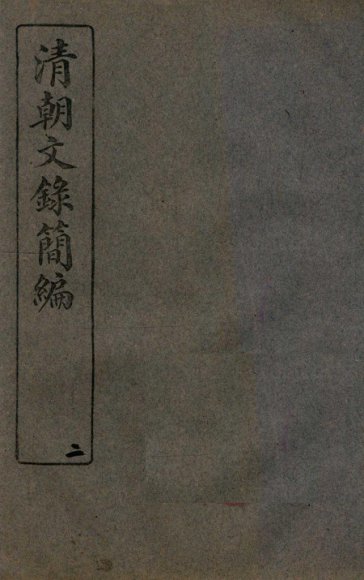 清朝文錄簡編
二